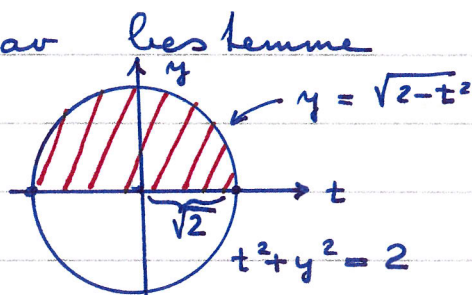 av bestemme
y
y = √(2-t²)
t
√2
t² + y² = 2